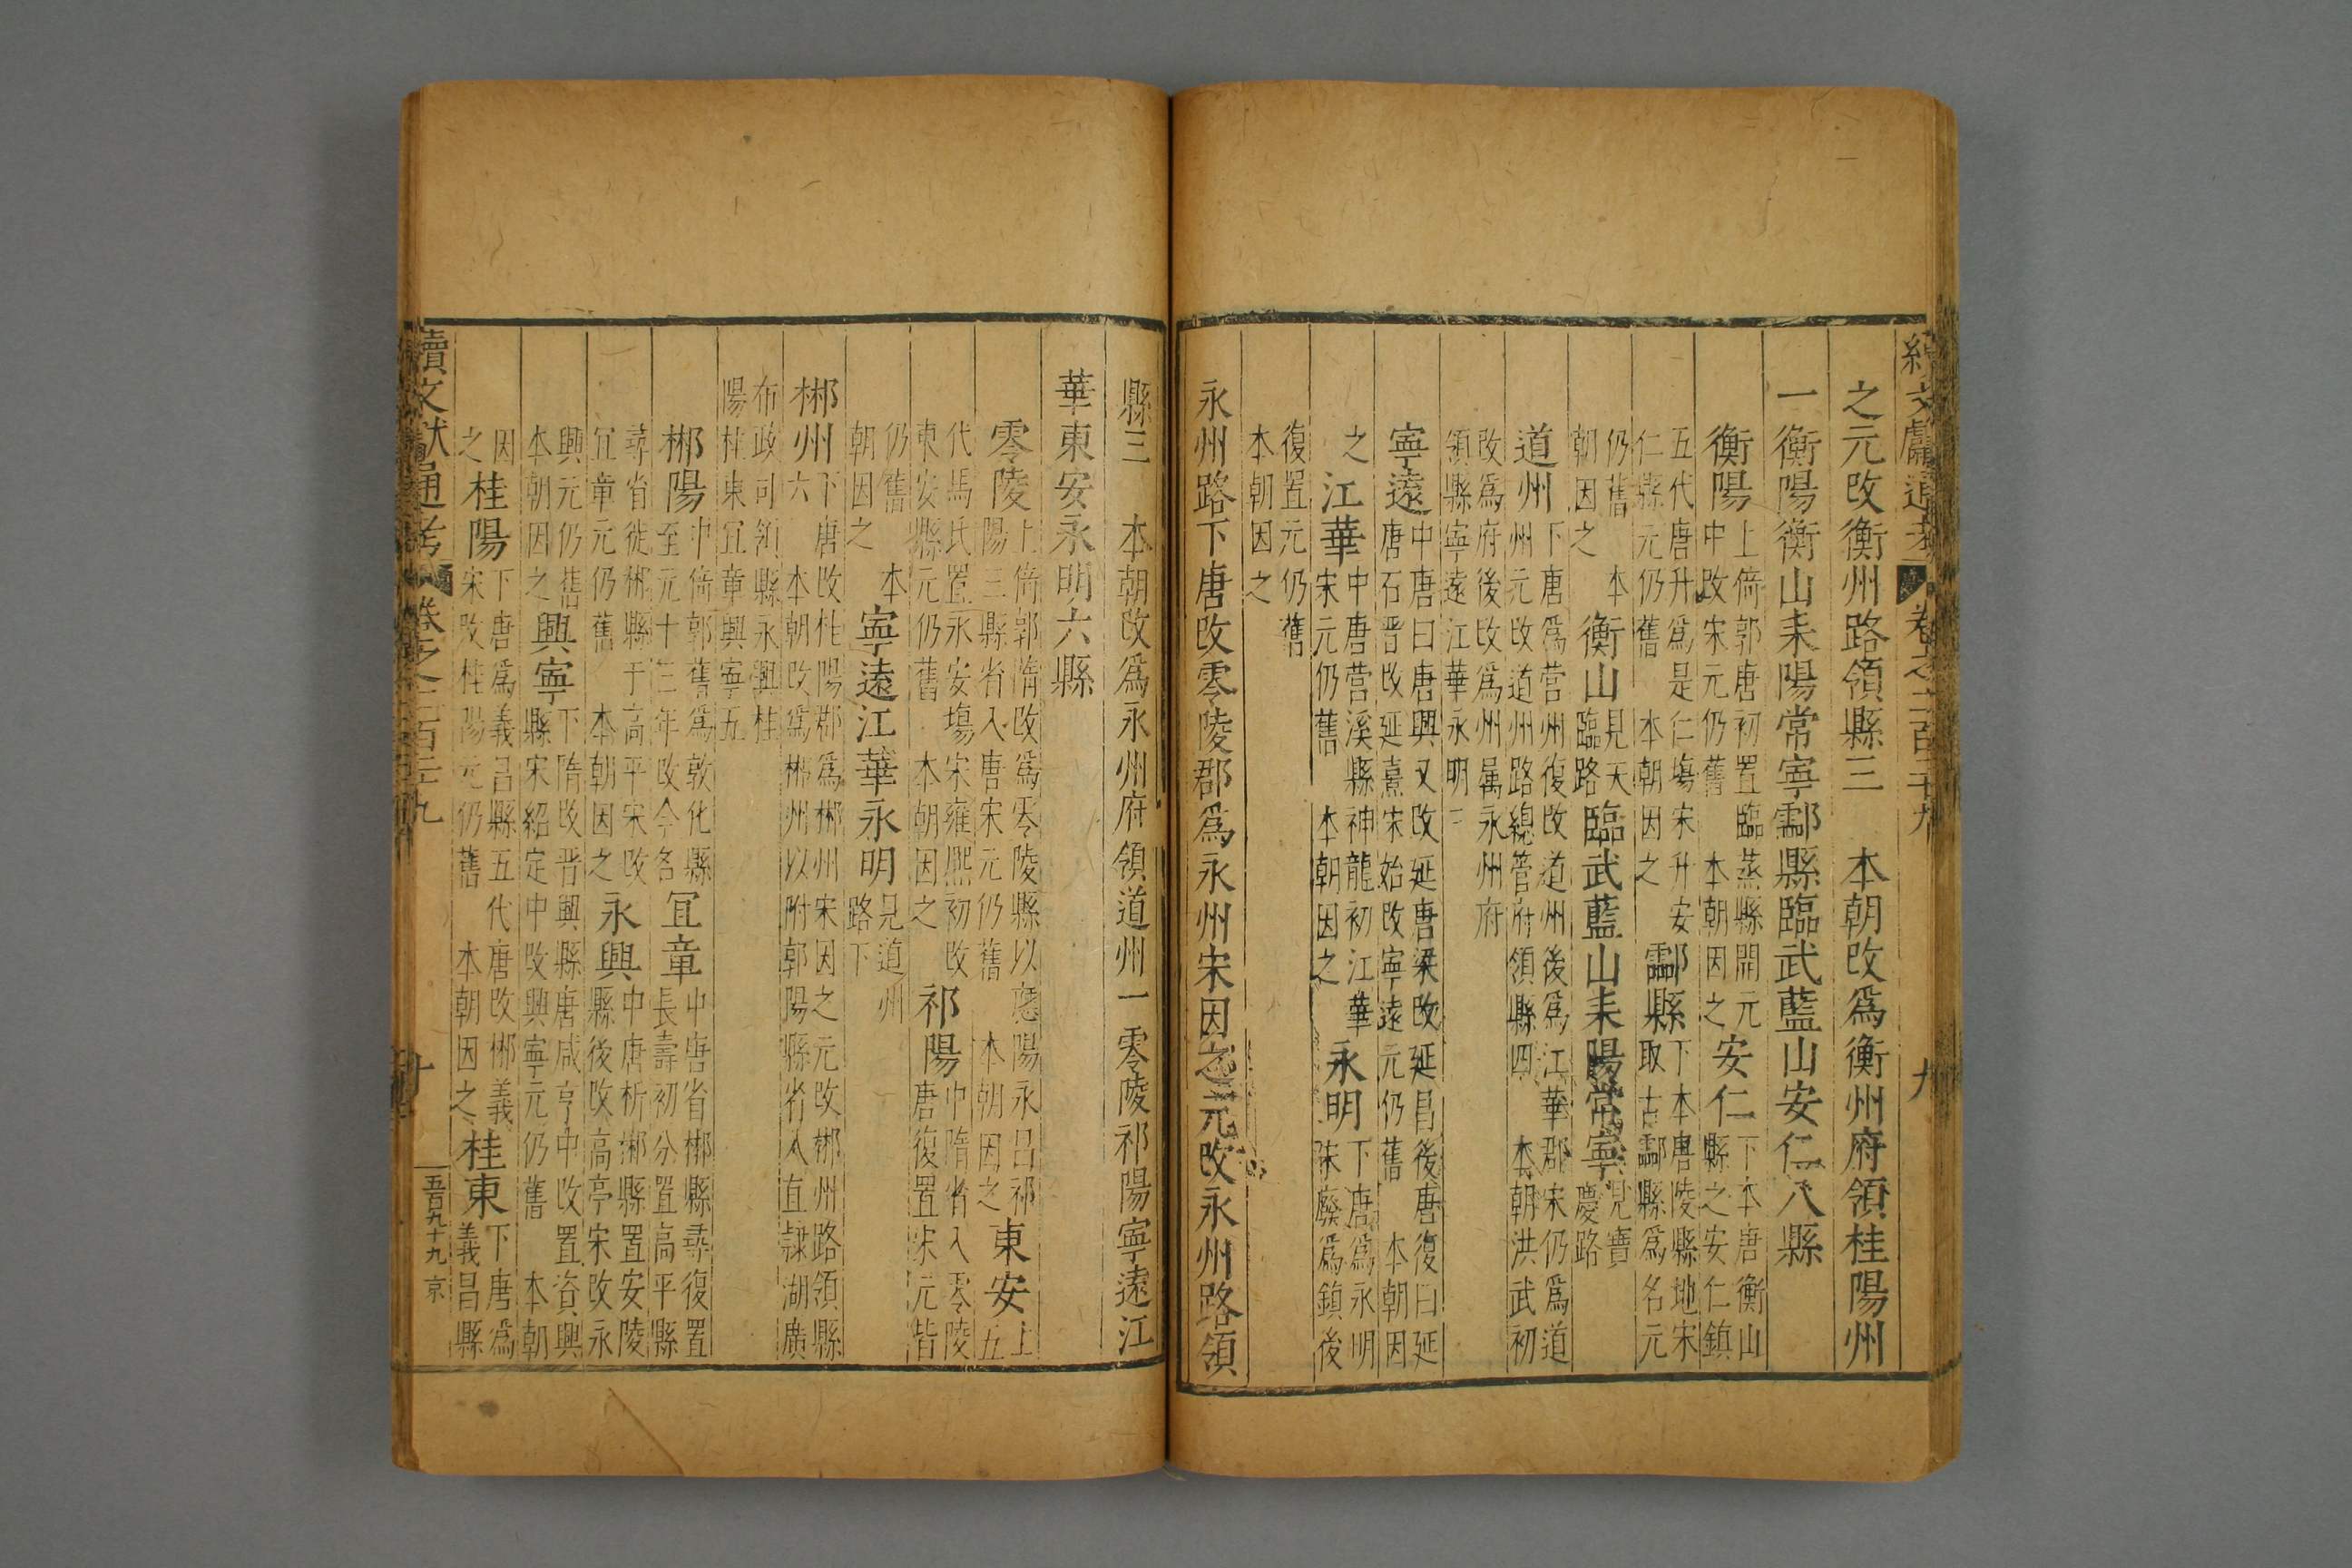 續文獻通考 卷之二百二十九 九
之元改衡州路領縣三 本朝改爲衡州府領桂陽州
一衡陽衡山耒陽常寧酃縣臨武藍山安仁八縣
衡陽上倚郭唐初置臨蒸縣開元
中改宋元仍舊 本朝因之安仁下本唐衡山
縣之安仁鎮
五代唐升爲是仁塲宋升安
仁縣元仍舊 本朝因之酃縣下本唐陵縣地宋
取古酃縣爲名元
仍舊 本
朝因之衡山見天
臨路臨武藍山耒陽常寧見寶
慶路
道州下唐爲營州復改道州後爲江華郡宋仍爲道
州元改道州路總管府領縣四 本朝洪武初
改爲府後改爲州属永州府
領縣寧遠江華永明三
寧遠中唐曰唐興又改延唐梁改延昌後唐復曰延
唐石晋改延熹宋始改寧遠元仍舊 本朝因
之江華中唐營溪縣神龍初江華
宋元仍舊 本朝因之永明下唐爲永明
宋廢爲鎮後
復置元仍舊
本朝因之
永州路下唐改零陵郡爲永州宋因之元改永州路領
縣三 本朝改爲永州府領道州一零陵祁陽寧遠江
華東安永明六縣
零陵上倚郭隋改爲零陵縣以應陽永昌祁
陽三縣省入唐宋元仍舊 本朝因之東安上
五
代馬氏置永安塲宋雍熙初改
東安縣元仍舊 本朝因之祁陽中隋省入零陵
唐復置宋元皆
仍舊 本
朝因之寧遠江華永明見道州
路下
郴州下唐改桂陽郡爲郴州宋因之元改郴州路領縣
六 本朝改爲郴州以附郭陽縣省入直隷湖廣
布政司領縣永興桂
陽桂東宜章興寧五
郴陽中倚郭舊爲敦化縣
至元十三年改今名宜章中唐省郴縣尋復置
長壽初分置高平縣
尋省徙郴縣于高平宋改
宜章元仍舊 本朝因之永興中唐析郴縣置安陵
縣後改高亭宋改永
興元仍舊
本朝因之興寧下隋改晋興縣唐咸亨中改置資興
縣宋紹定中改興寧元仍舊 本朝
因
之桂陽下唐爲義昌縣五代唐改郴義
宋改桂陽元仍舊 本朝因之桂東下唐爲
義昌縣
續文獻通考 卷之二百二十九 十
五百九十九 京